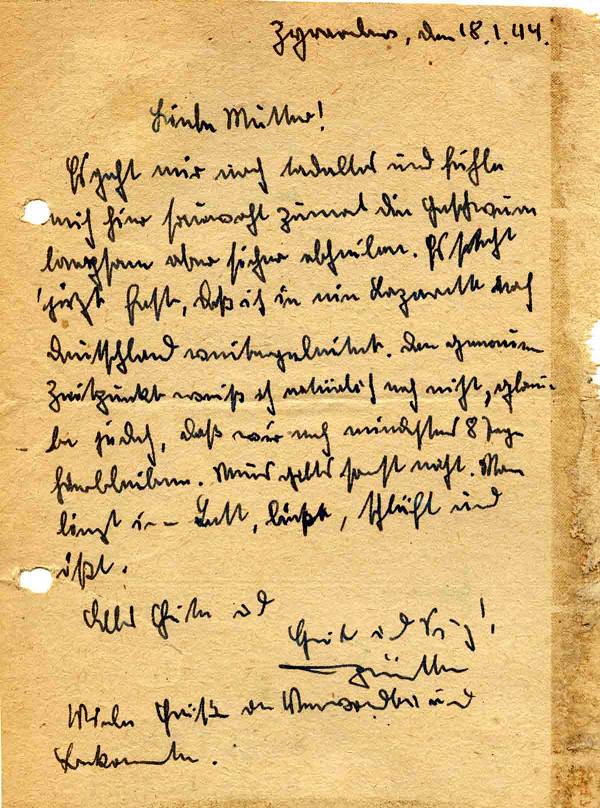 Zyrardow, den 18.1.44.
Liebe Mutter!
Es geht mir noch tadellos und fühle
mich hier sauwohl zumal die Geschwüre
langsam aber sicher abheilen. Es steht
jetzt fest, daß ich in ein Lazarett nach
Deutschland weitergeleitet. Den genauen
Zeitpunkt weiß ich natürlich noch nicht, glau-
be jedoch, daß wir noch mindestens 8 Tage
hierbleiben. Neues gibts sonst nicht. Man
liegt im Bett, ließt, schläft und
ißt.
Alles Gute und
Gruß und
Günther
Viele Grüße an Verwandte und
Bekannte.